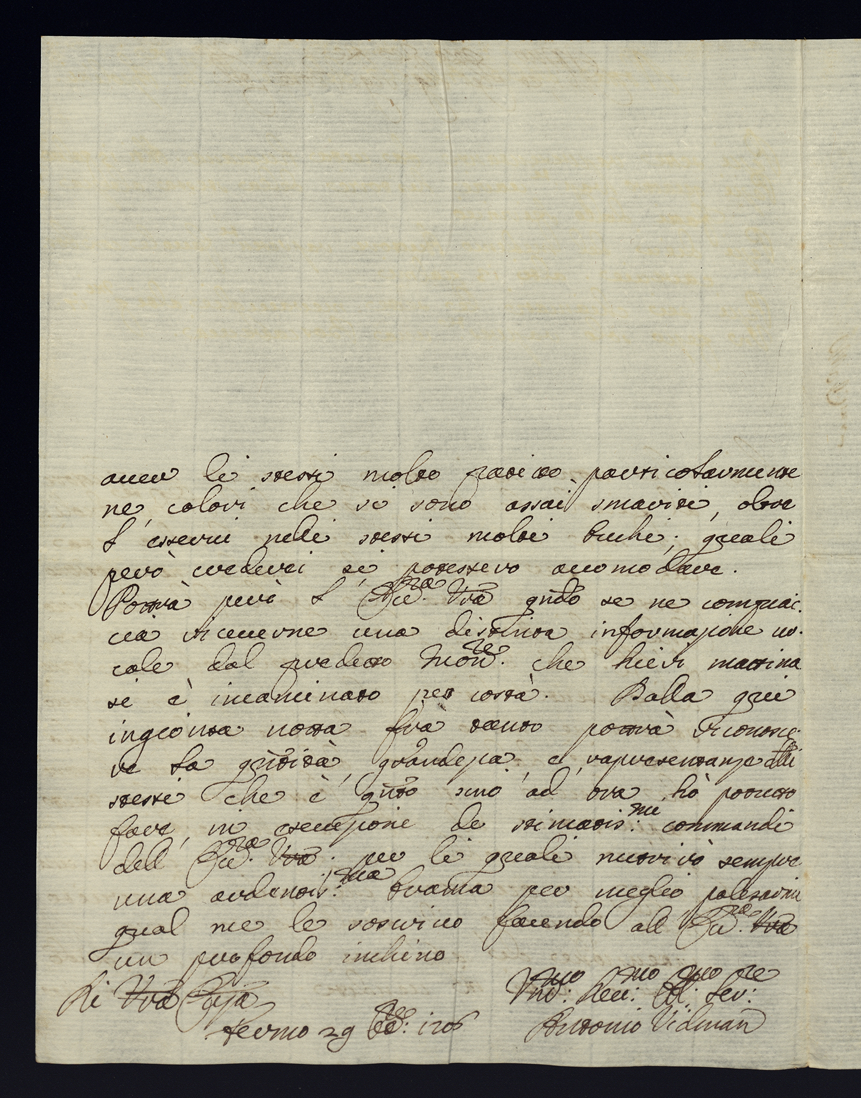 auer li stessi molto patito, particolarmente
ne colori che si sono assai smariti, oltre
l'esservi nelli stessi molti buchi; quali
però crederei si potessero accomodare.
Potrà però l'Ecc.za Vra qndo se ne compiac-
cia riceverne una distinta informazione uo-
cale dal predetto che hieri matina
si è incaminato per costà. Dalla qui
ingionta notta frà tanto potrà riconosce-
re la qntità, grandeza, e rapresentanze delli
stessi che è qnto sino ad ora hò potuto
fare in esecuzione de stimatis.mi commandi
dell'Ecc.za Vra per li quali nutrirò sempre
una ardentis.ma brama per meglio palesarmi
qual me le soscrivo facendo all'Ecc.za Vra
un profondo inchino
Di Vra Ecc.za
Fermo 29 1706
Antonio Vidman